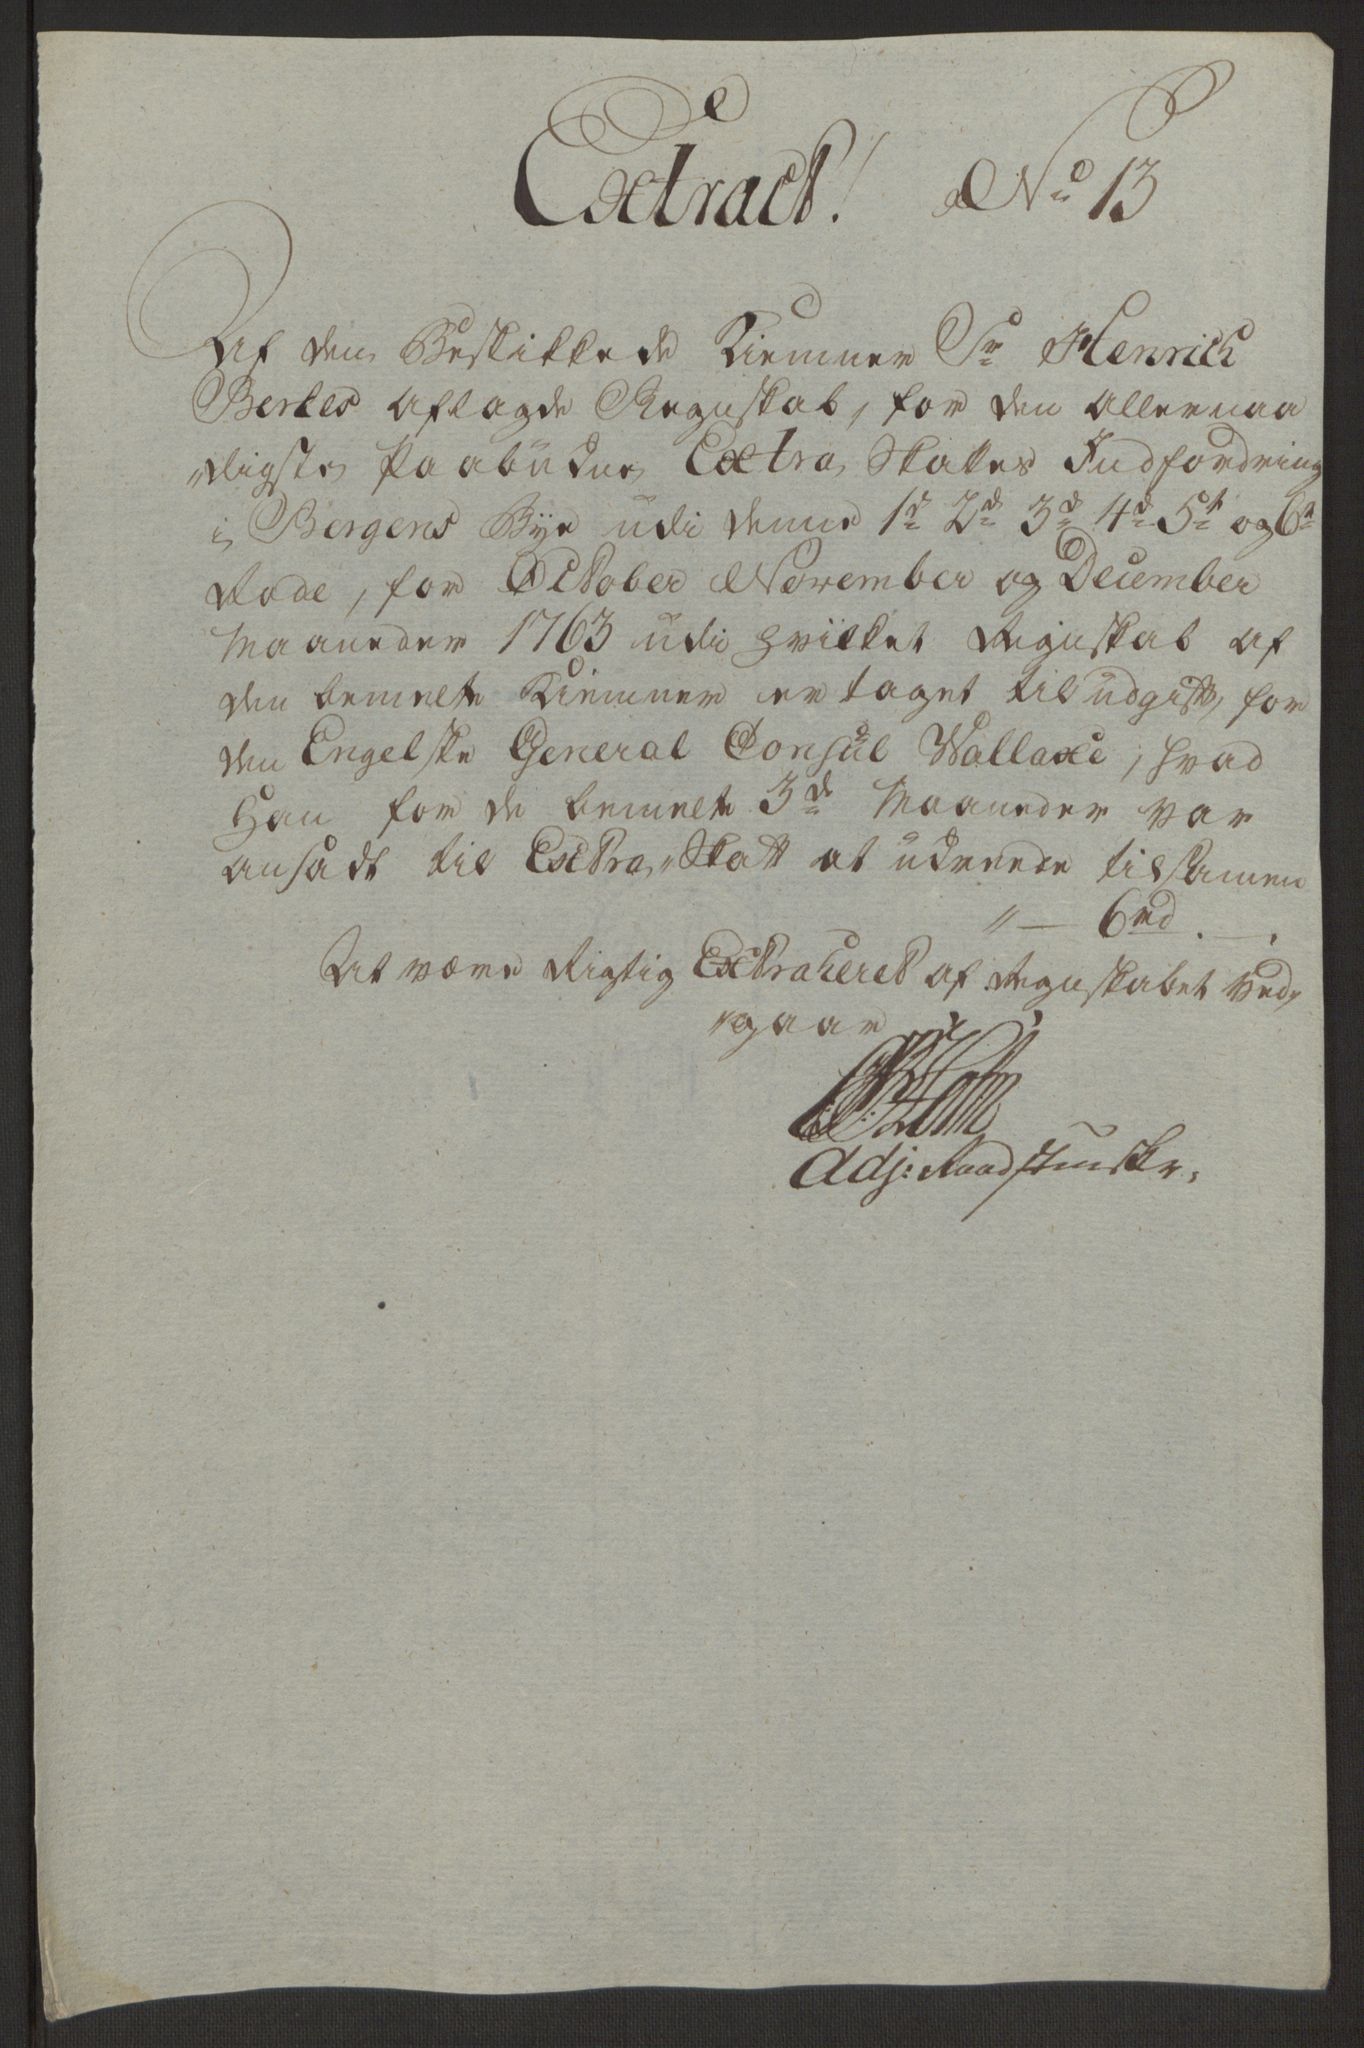 Extract! No 13
Af den Beskikkede Kiemner Sr Henrich
Bertes aflagde Regnskab, for den allernaa
„digste Paabudne Extra Skattes Indfordring
i Bergens Bÿe udi denne 1ste 2den 3de 4de 5te og 6te
Rode, for October November og December
Maaneder 1763 udi hvilket Regnskab af
den bemelte Kiemner er taget til udgift, for
den Engelske General Consul Wallace, hvad
Han for de bemelte 3de Maaneder var
ansadt til Extra„Skatt at udreede tilsamen
„ — 6rd . — .
At være Rigtig Extraheret af Regnskabet ved„
„gaar
Holm
Adj: Raadstueskr.